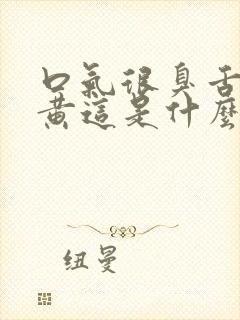 口氣很臭舌
黃這是什麼
纽曼